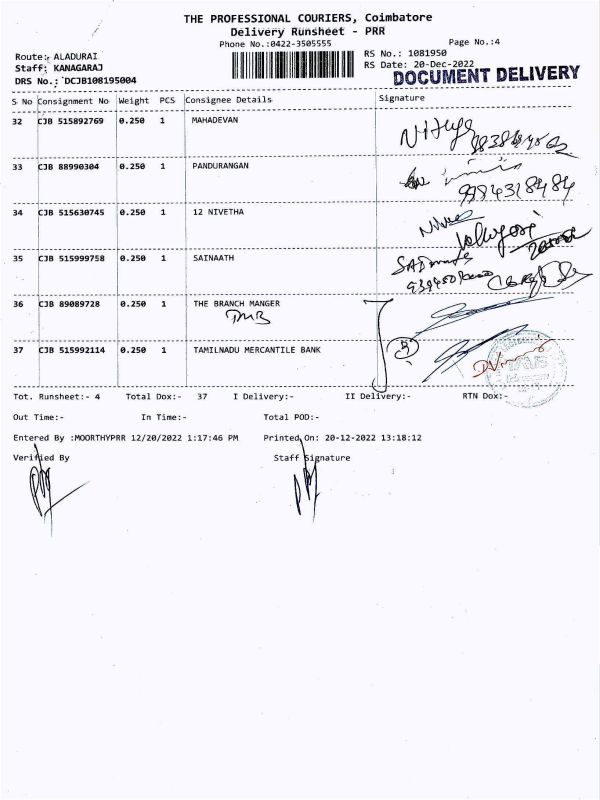 THE PROFESSIONAL COURIERS, Coimbatore
Delivery Runsheet - PRR
Phone No.:0422-3505555
Page No.:4
Route: ALADURAI
Staff: KANAGARAJ
DRS No.: DCJB108195004
RS No.: 1081950
RS Date: 20-Dec-2022
DOCUMENT DELIVERY
S No Consignment No Weight PCS Consignee Details Signature
32 CJB 515892769 0.250 1 MAHADEVAN
33 CJB 88990304 0.250 1 PANDURANGAN
9984318484
34 CJB 515630745 0.250 1 12 NIVETHA
35 CJB 515999758 0.250 1 SAINAATH
36 CJB 89089728 0.250 1 THE BRANCH MANGER
TMB
37 CJB 515992114 0.250 1 TAMILNADU MERCANTILE BANK
Tot. Runsheet:- 4 Total Dox:- 37 I Delivery:- II Delivery:- RTN Dox:-
Out Time:- In Time:- Total POD:-
Entered By :MOORTHYPRR 12/20/2022 1:17:46 PM Printed On: 20-12-2022 13:18:12
Verified By Staff Signature